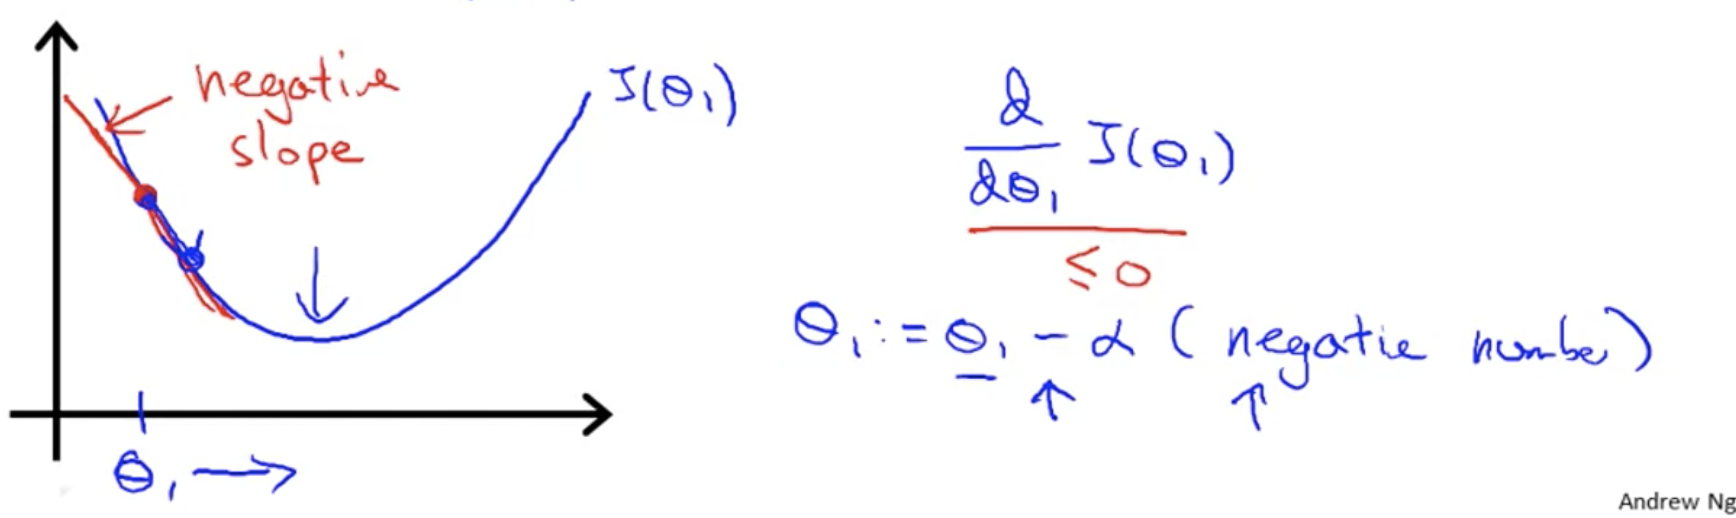 negative
slope
J(θ₁)
d
dθ₁
J(θ₁)
≤ 0
θ₁ := θ₁ - α (negative number)
θ₁
Andrew Ng